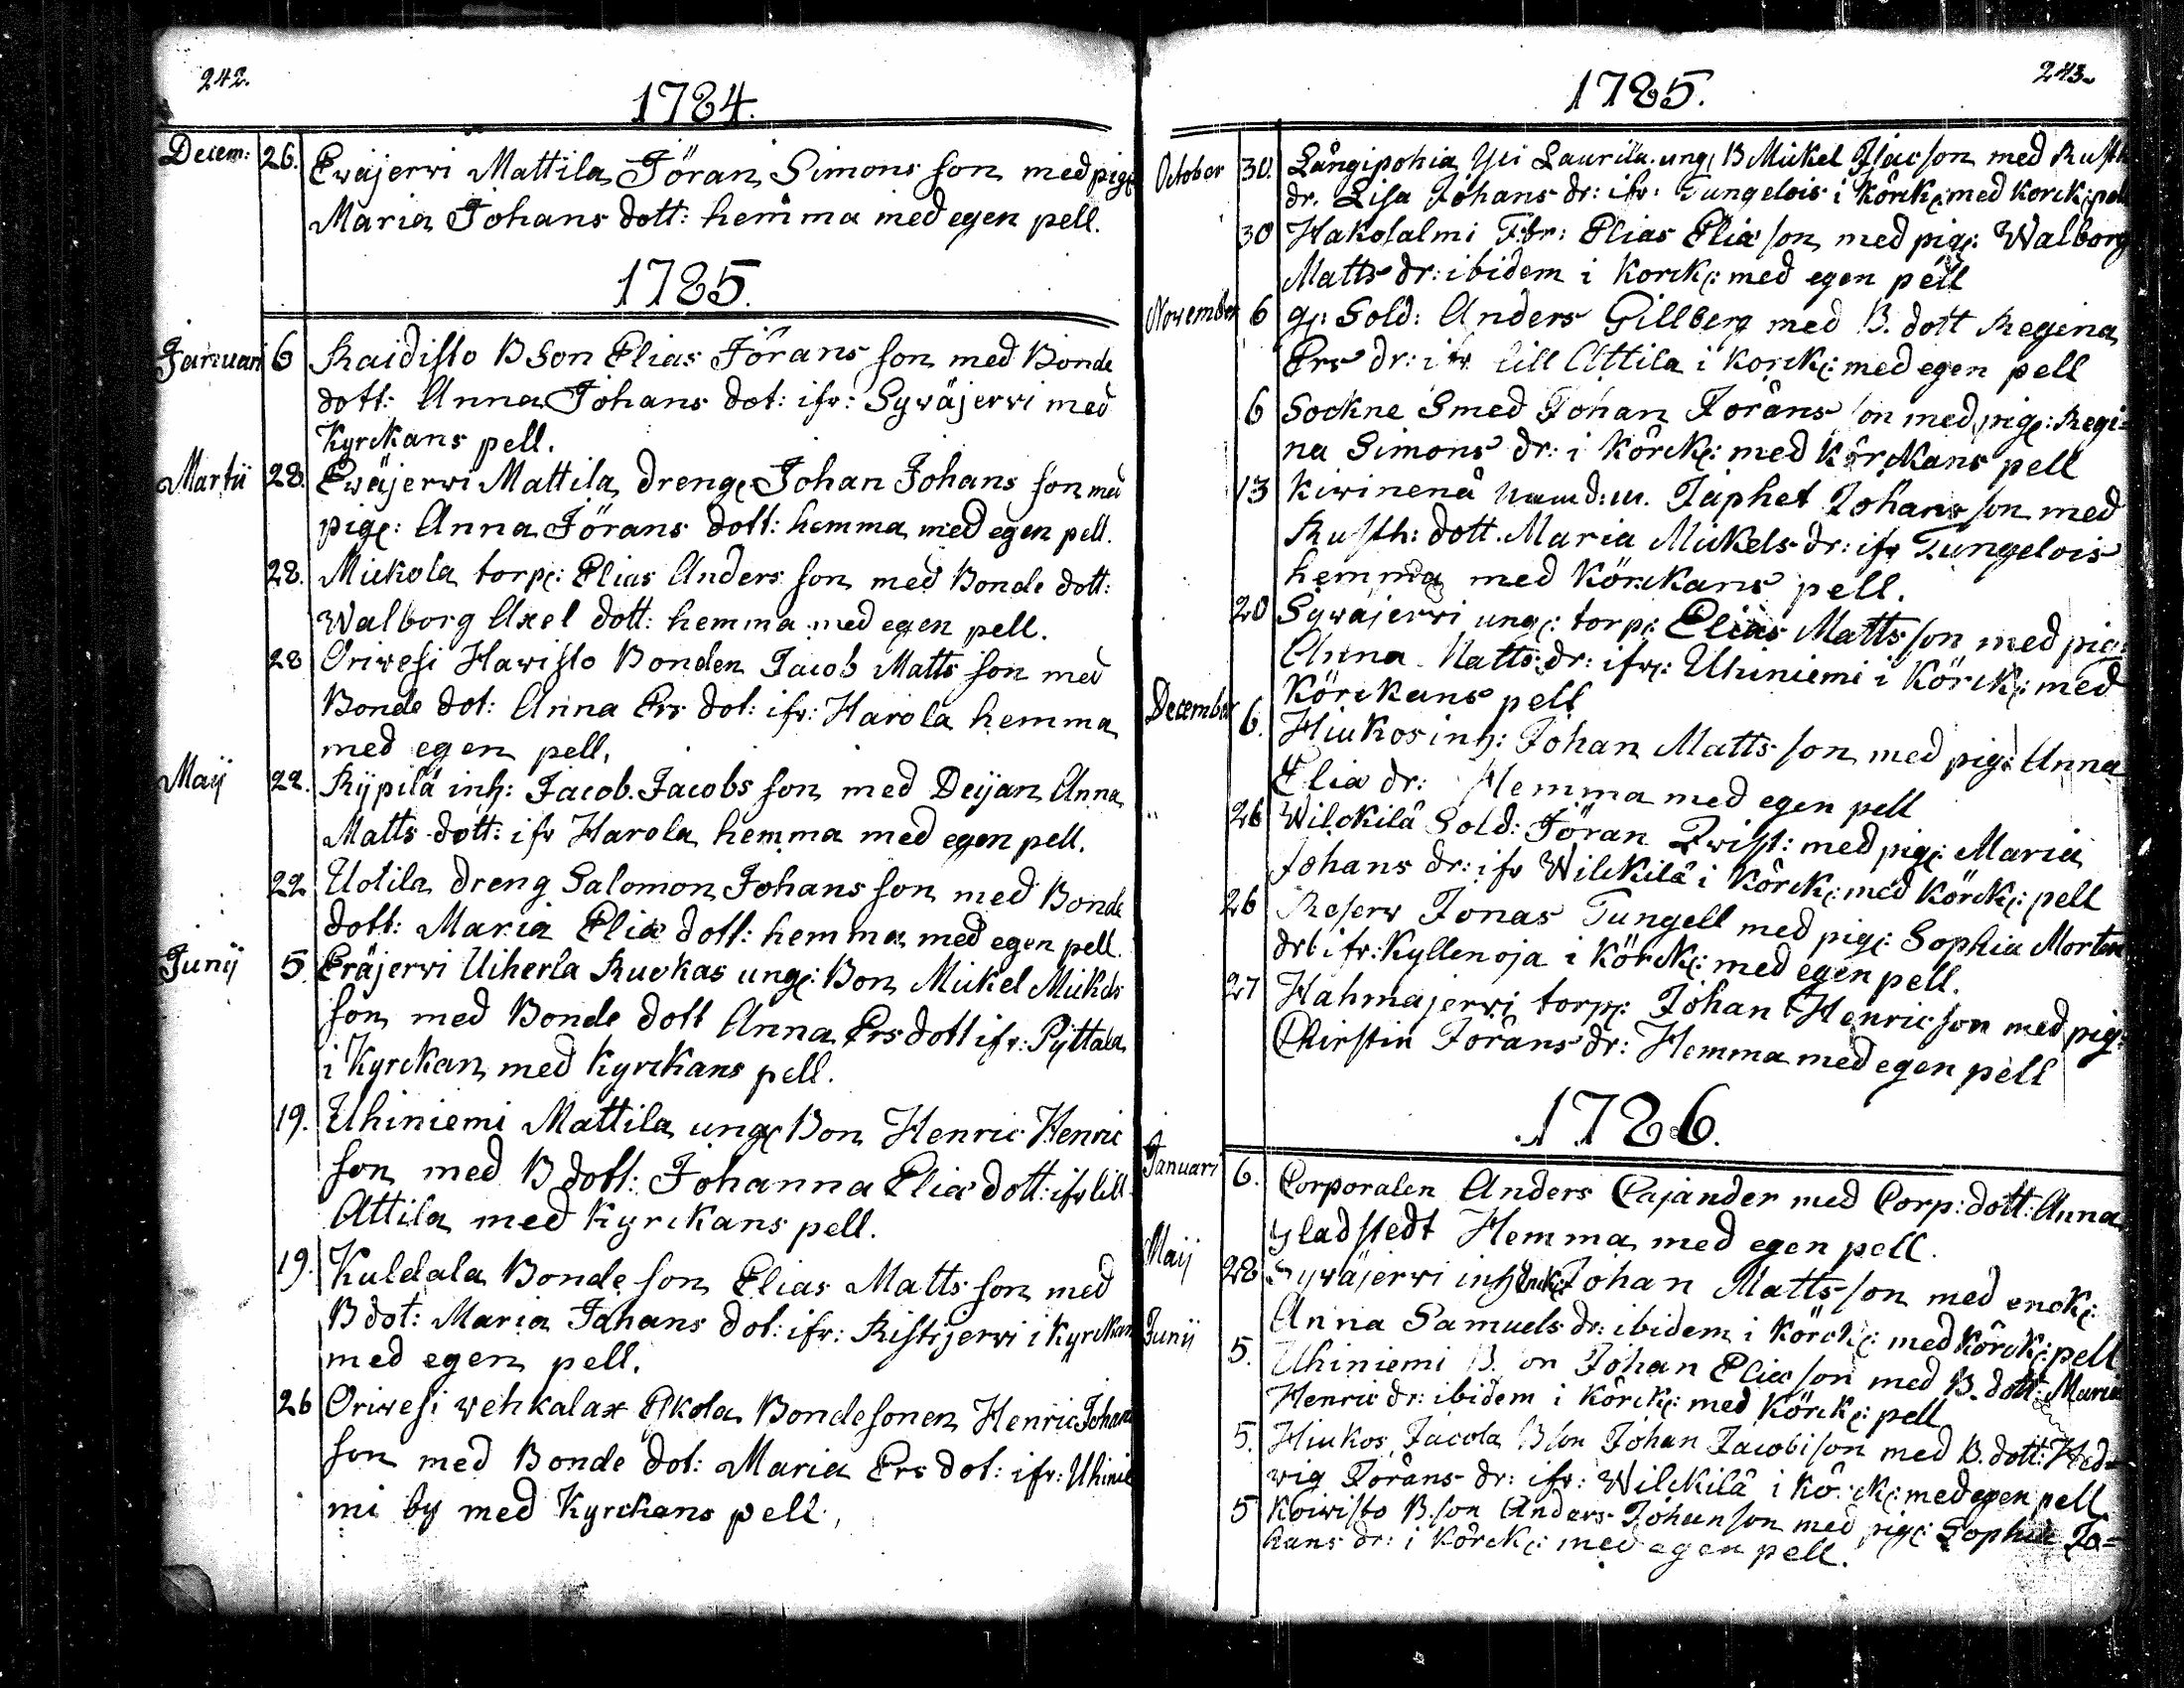 242.
1784.
Decem: 26. Eräjerwi Mattila Jöran Simons son med pig:
Maria Johans dott: hemma med egen pell.
1785.
Januari 6 Kaidisto B Son Elias Jörans son med Bonde
dott: Anna Johans dot: ifr: Sywäjerwi med
Kyrckans pell.
Martii 28. Eräjerwi Mattila dreng: Johan Johans son med
pig: Anna Jörans dott: hemma med egen pell.
28. Mickola torp: Elias Anders son med Bonde dott:
Walborg Axel dott: hemma med egen pell.
28 Oriwesi Hawisto Bonden Jacob Matts son med
Bonde dot: Anna Ers dot: ifr: Harola hemma
med egen pell.
Maij 22. Rypilä inh: Jacob Jacobs son med Deijan Anna
Matts dott: ifr Harola hemma med egen pell.
22 Uotila dreng Salomon Johans son med Bonde
dott: Maria Eliæ dott: hemma med egen pell.
Junij 5. Eräjerwi Uiherla Ruokas ung: Bon Mickel Mickels
son med Bonde dott Anna Ers dott ifr: Pyttala
i Kyrckan med Kyrckans pell.
19. Uhiniemi Mattila ung: Bon Henric Henric
son med B dott: Johanna Eliæ dott: ifr lill
Attila med Kyrckans pell.
19. Kuldala Bonde son Elias Matts son med
B dot: Maria Johans dot: ifr: Ristijerwi i Kyrckan
med egen pell.
26 Oriwesi wehkalax Eskola Bondesonen Henric Johans
son med Bonde dot: Maria Ers dot: ifr: Uhinie
mi by med Kyrckans pell.
243.
1785.
October 30. Långipohia Yli Laurila ung: B Mickel Isacson med Rusth
dr. Lisa Johans dr: ifr: Tungelois i Körck: med Körck: pell
30 Hakosalmi Tor: Elias Eliæ son med pig: Walborg
Matts dr: ibidem i Körck: med egen pell
November 6 g: Sold: Anders Gillberg med B. dott Regina
Ers dr: ifr lill Attila i Körck: med egen pell
6 Sockne Smed Johan Jörans son med pig: Regi=
na Simons dr: i Körck: med Körckans pell
13 Kiwinenä Namd:m. Japhet Johans son med
Rusth: dott. Maria Mickels dr: ifr Tungelois
hemma med Körckans pell.
20 Sywäjerwi ung: torp: Elias Matts son med pig:
Anna Matts dr: ifr: Uhiniemi i Körck: med
Körckans pell
December 6. Hiukos inh: Johan Matts son med pig: Anna
Eliæ dr: Hemma med egen pell
26 Wilckilä Sold: Jöran Qvist: med pig: Maria
Johans dr: ifr Wilckilä i Körck: med Körck: pell
26 Reserv Jonas Tungell med pig: Sophia Morten
drt ifr: Kyllenoja i Körck: med egen pell.
27 Hahmajerwi torp: Johan Henric son med pig:
Christin Jörans dr: Hemma med egen pell
1786.
Januari 6. Corporalen Anders Cajander med Corp: dott: Anna
Gladstedt Hemma med egen pell.
Maij 28 Sywäjerwi inh Enck: Johan Matts son med enck:
Anna Samuels dr: ibidem i Körck: med Körck: pell
Junij 5. Uhiniemi B. on Johan Eliæ son med B. dott: Maria
Henric dr: ibidem i Körck: med Körck: pell
5. Hiukos Jacola B son Johan Jacobi son med B. dott: Hed=
wig Jörans dr: ifr: Wilckilä i Körck: med egen pell
5 Koiwisto B. son Anders Johan son med pig: Sophia Jo=
hans dr: i Körck: med egen pell.